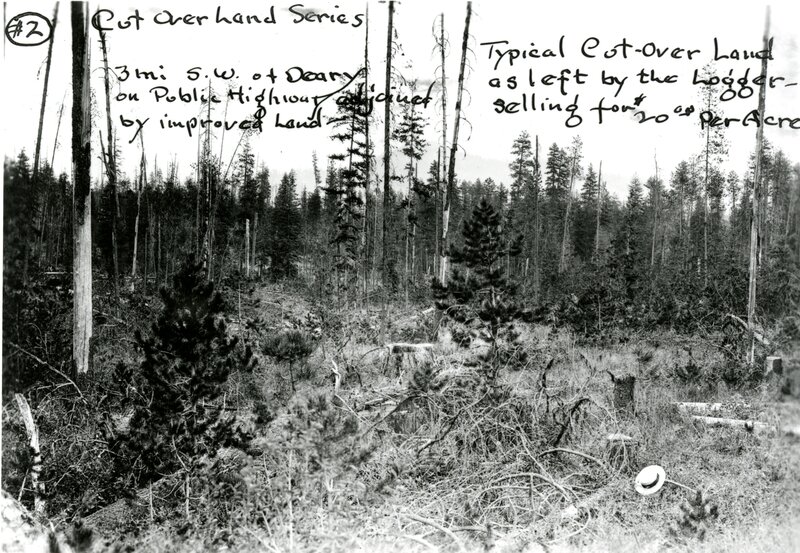 #2
Cut Over Land Series
3 mi S.W. of Deary
on Public Highway adjoined
by improved Land
Typical Cut-Over Land
as left by the Logger-
selling for $20.00 Per Acre